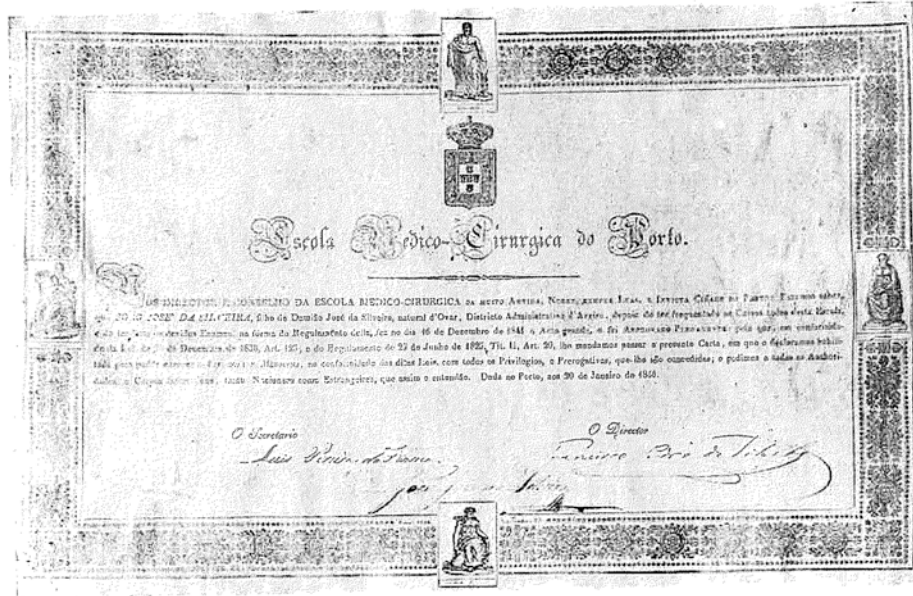 Escola Medico-Cirurgica do Porto.
NOS DIRECTOR, E CONSELHO DA ESCOLA MEDICO-CIRURGICA DA MUITO ANTIGA, NOBRE, SEMPRE LEAL, E INVICTA CIDADE DO PORTO: Fazemos saber,
que JOÃO JOSÉ DA SILVEIRA, filho de Damião José da Silveira, natural d'Ovar, Districto Administrativo d'Aveiro, depois de ter frequentado os Cursos todos desta Escola,
e de ter feito os devidos Exames, na fórma do Regulamento della, fez no dia 16 de Dezembro de 1841 o Acto grande, e foi APPROVADO PLENAMENTE; pelo que, em conformidade
da Lei de de Dezembro de 1836, Art. 125, e do Regulamento de 27 de Junho de 1825, Tit. II, Art. 20, lhe mandamos passar a presente Carta, em que o declaramos habili-
tado para poder na conformidade das ditas Leis, com todos os Privilegios, e Prerogativas, que lhe são concedidas; e pedimos a todas as Authori-
dades, e Corpos tanto Nacionaes como Estrangeiros, que assim o entendão. Dada no Porto, aos 20 de Janeiro de
O Secretario
O Director
Luis Pereira da Fonseca
Francisco